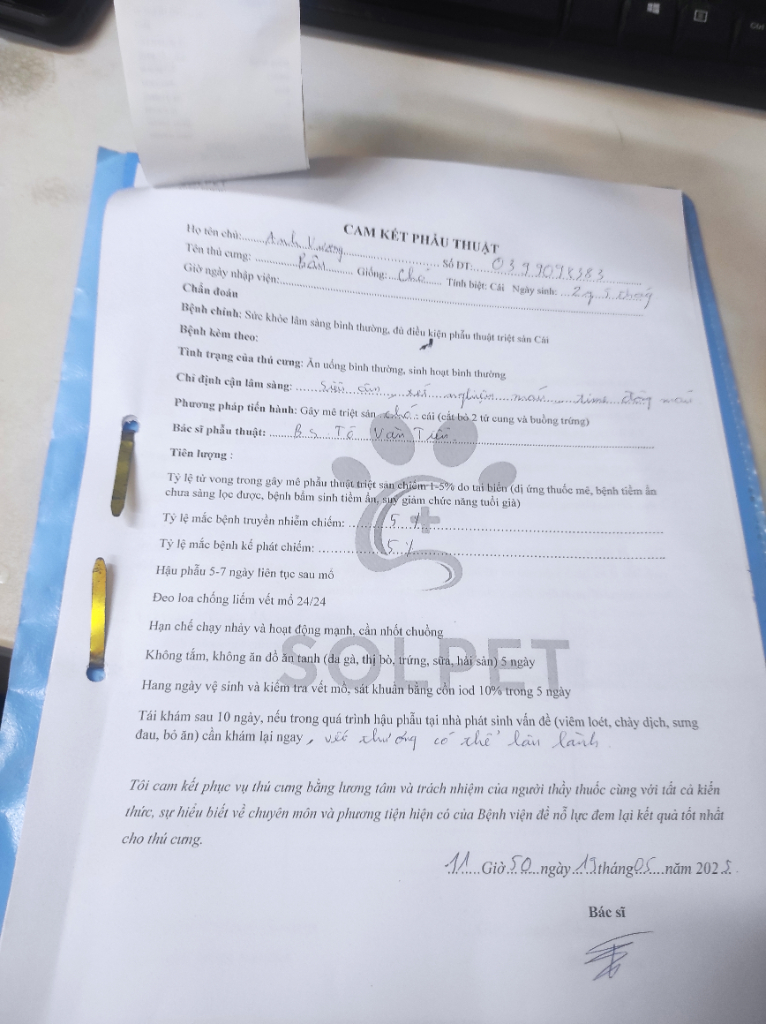 CAM KẾT PHẪU THUẬT
Họ tên chủ: Anh Vương Số ĐT: 0399098383
Tên thú cưng: Bần Giống: Chó Tính biệt: Cái Ngày sinh: 2 5 tháng
Giờ ngày nhập viện:
Chẩn đoán
Bệnh chính: Sức khỏe lâm sàng bình thường, đủ điều kiện phẫu thuật triệt sản Cái
Bệnh kèm theo:
Tình trạng của thú cưng: Ăn uống bình thường, sinh hoạt bình thường
Chỉ định cận lâm sàng: Siêu âm, xét nghiệm máu, time đông máu
Phương pháp tiến hành: Gây mê triệt sản chó cái (cắt bỏ 2 tử cung và buồng trứng)
Bác sĩ phẫu thuật: B.S Tô Văn Tiến
Tiên lượng :
Tỷ lệ tử vong trong gây mê phẫu thuật triệt sản chiếm 1-5% do tai biến (dị ứng thuốc mê, bệnh tiềm ẩn
chưa sàng lọc được, bệnh bẩm sinh tiềm ẩn, suy giảm chức năng tuổi già)
Tỷ lệ mắc bệnh truyền nhiễm chiếm: 5 %
Tỷ lệ mắc bệnh kế phát chiếm: 5 %
Hậu phẫu 5-7 ngày liên tục sau mổ
Đeo loa chống liếm vết mổ 24/24
Hạn chế chạy nhảy và hoạt động mạnh, cần nhốt chuồng
SOLPET
Không tắm, không ăn đồ ăn tanh (da gà, thị bò, trứng, sữa, hải sản) 5 ngày
Hang ngày vệ sinh và kiểm tra vết mổ, sát khuẩn bằng cồn iod 10% trong 5 ngày
Tái khám sau 10 ngày, nếu trong quá trình hậu phẫu tại nhà phát sinh vấn đề (viêm loét, chảy dịch, sưng
đau, bỏ ăn) cần khám lại ngay, vết thương có thể lâu lành.
Tôi cam kết phục vụ thú cưng bằng lương tâm và trách nhiệm của người thầy thuốc cùng với tất cả kiến
thức, sự hiểu biết về chuyên môn và phương tiện hiện có của Bệnh viện để nỗ lực đem lại kết quả tốt nhất
cho thú cưng.
11 Giờ 50 ngày 19 tháng 05 năm 2025
Bác sĩ